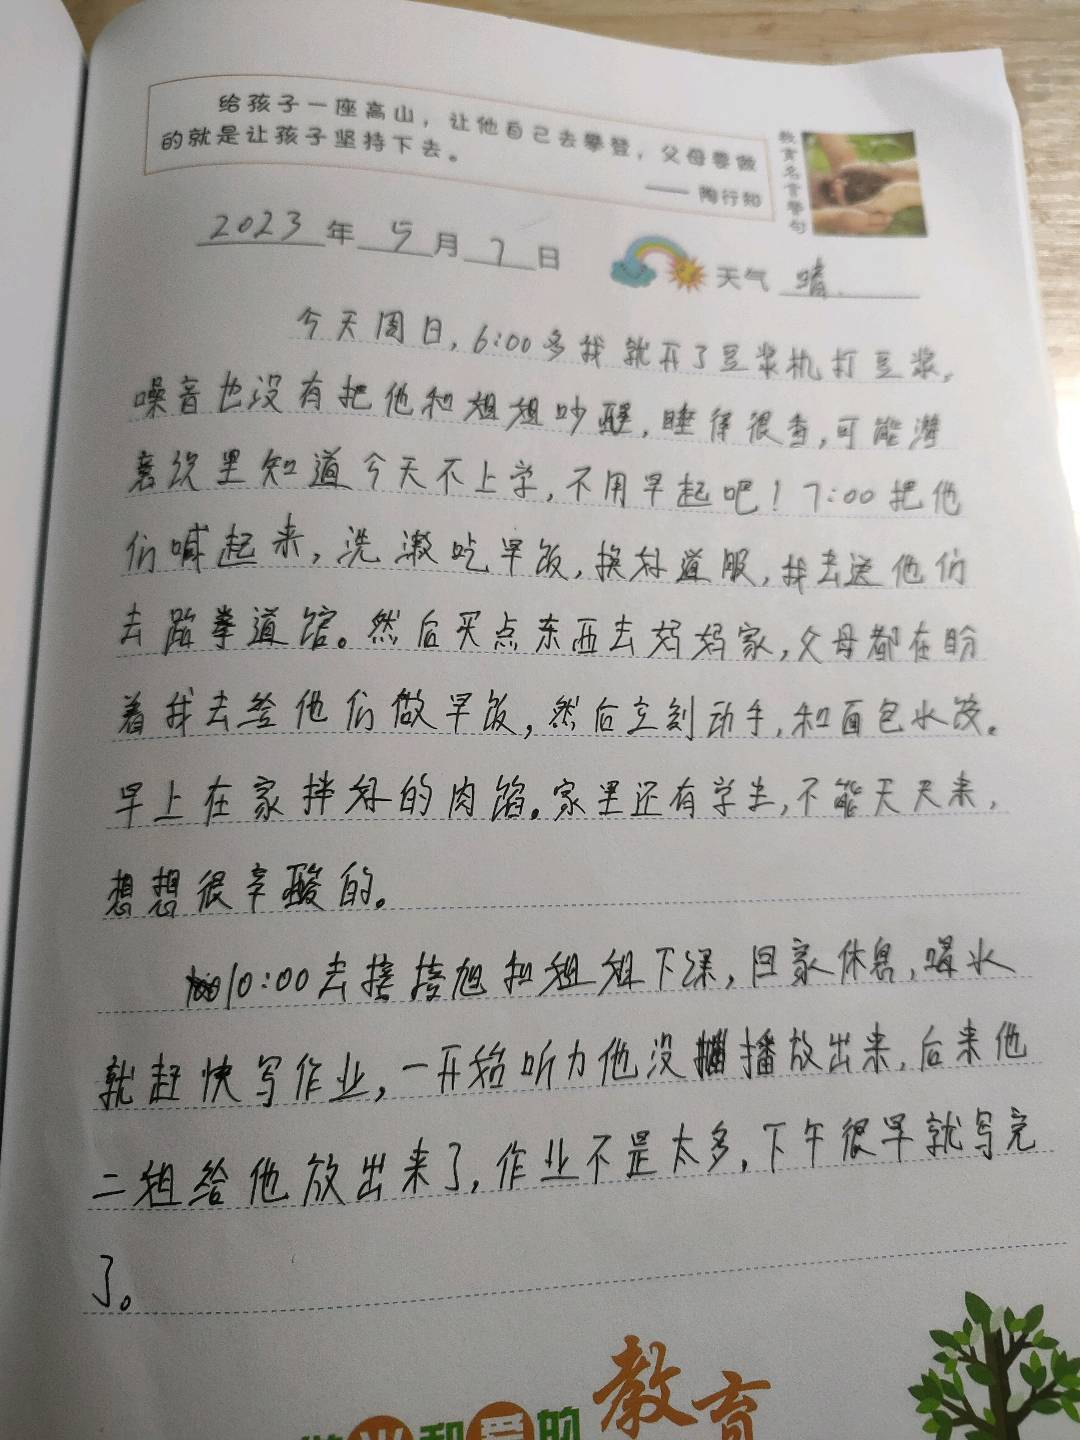 给孩子一座高山，让他自己去攀登，父母要做
的就是让孩子坚持下去。
—— 陶行知
教育名言警句
2023年 5月 7日
天气 晴.
今天周日，6:00多我就开了豆浆机打豆浆，
噪音也没有把他和姐姐吵醒，睡得很香，可能潜
意识里知道今天不上学，不用早起吧！7:00把他
们喊起来，洗漱吃早饭，换好道服，我去送他们
去跆拳道馆。然后买点东西去妈妈家，父母都在盼
着我去给他们做早饭，然后立刻动手，和面包水饺。
早上在家拌好的肉馅。家里还有学生，不能天天来，
想想很辛酸的。
10:00去接 旭和姐姐下课，回家休息，喝水
就赶快写作业，一开始听力他没播放出来，后来他
二姐给他放出来了，作业不是太多，下午很早就写完
了。
和爱的教育